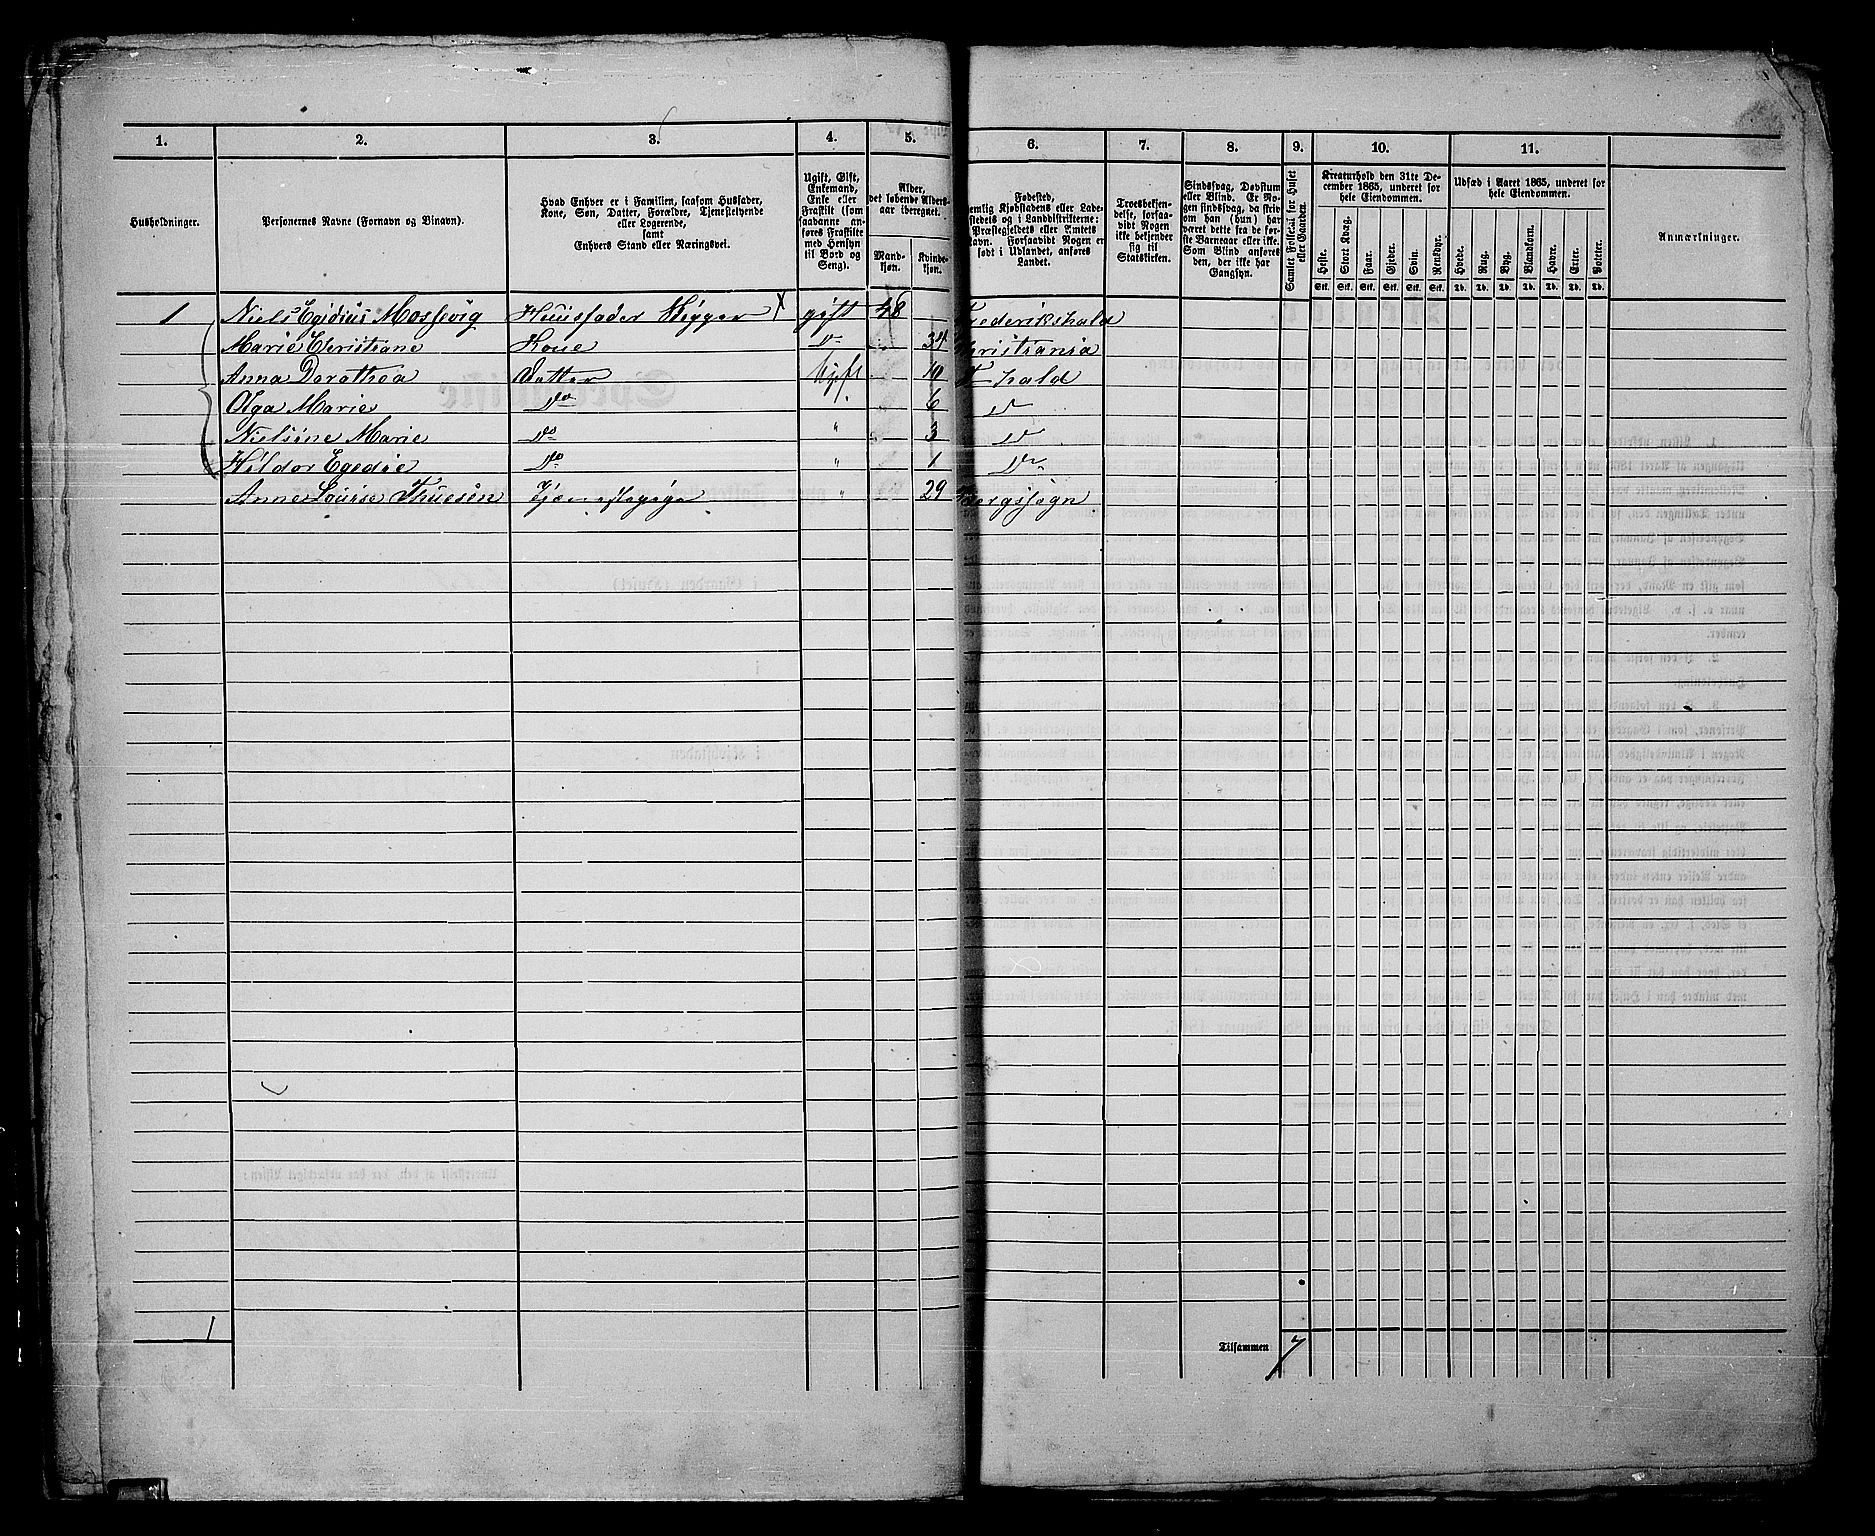 1. 2. 3. 4. 5. 6. 7. 8. 9. 10. 11.
Husholdninger.
Personernes Navne (Fornavn og Vinavn).
Hvad Enhver er i Familien, saasom Husfader,
Kone, Søn, Datter, Forældre, Tjenestetyende
eller Logerende,
samt
Enhvers Stand eller Næringsvei.
Ugift, Gift,
Enkemand,
Enke eller
Fraskilt (som
saadanne an-
føres Fraskilte
med Hensyn
til Bord og
Seng).
Alder,
det løbende Alders-
aar iberegnet.
Mand-
kjøn.
Kvinde-
kjøn.
Fødested,
emlig Kjøbstadens eller Lade-
stedets og i Landdistrikterne:
Præstegjeldets eller Amtets
Navn. Forsaavidt Nogen er
født i Udlandet, anføres
Landet.
Troesbekjen-
delse, forsaa-
vidt Nogen
ikke bekjender
sig til
Statskirken.
Sindssvag, Døvstum
eller Blind. Er No-
gen sindssvag, da skriv
om han (hun) har
været dette fra de før-
ste Barneaar eller ikke.
Som Blind anføres
den, der ikke har
Gangsyn.
Samlet Folketal for Huset
eller Gaarden.
Kreaturhold den 31te De-
cember 1865, underet for
hele Eiendommen.
Heste. Stort Kvæg. Faar. Gjeder. Svin. Rensdyr.
Stk. Stk. Stk. Stk. Stk. Stk.
Udsæd i Aaret 1865, underet for
hele Eiendommen.
Hvede. Rug. Byg. Blandkorn. Havre. Erter. Poteter.
Td. Td. Td. Td. Td. Td. Td.
Anmærkninger.
1 Niels Egidius Mossevig Huusfader Rigger X gift 48 Frederikshald
Marie Christiane Kone Do 34 Christiania
Anna Dorothea Datter Ugift 10 F hald
Olga Marie Do " 6 Do
Nielsine Marie Do " 3 Do
Hildor Egedie Do " 1 Do
Anne Lourse Thuesen Tjenestepige " 29 Bergssogn
1 Tilsammen 7